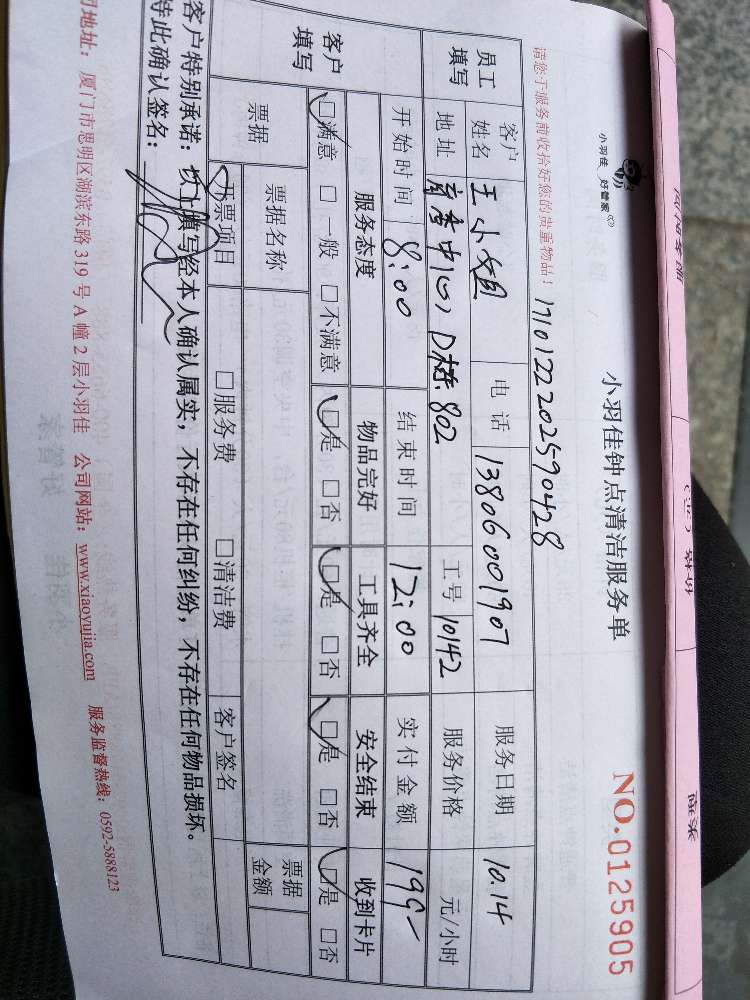 小羽佳 好管家
小羽佳钟点清洁服务单
NO.0125905
请您于服务前收拾好您的贵重物品！
171012202590428
员工填写
客户姓名 王小姐 电话 13806001907 服务日期 10.14
地址 D栋.802 工号 10142 服务价格 元/小时
开始时间 8:00 结束时间 12:00 实付金额
客户填写
服务态度 物品完好 工具齐全 安全结束 收到卡片
☑满意 □一般 □不满意 ☑是 □否 ☑是 □否 ☑是 □否 ☑是 □否
票据 票据名称 票据金额
开票项目 □服务费 □清洁费 客户签名
客户特别承诺：以上填写经本人确认属实，不存在任何纠纷，不存在任何物品损坏。
特此确认签名：
司地址：厦门市思明区湖滨东路 319 号 A 幢 2 层小羽佳 公司网站：www.xiaoyujia.com 服务监督热线：0592-5888123